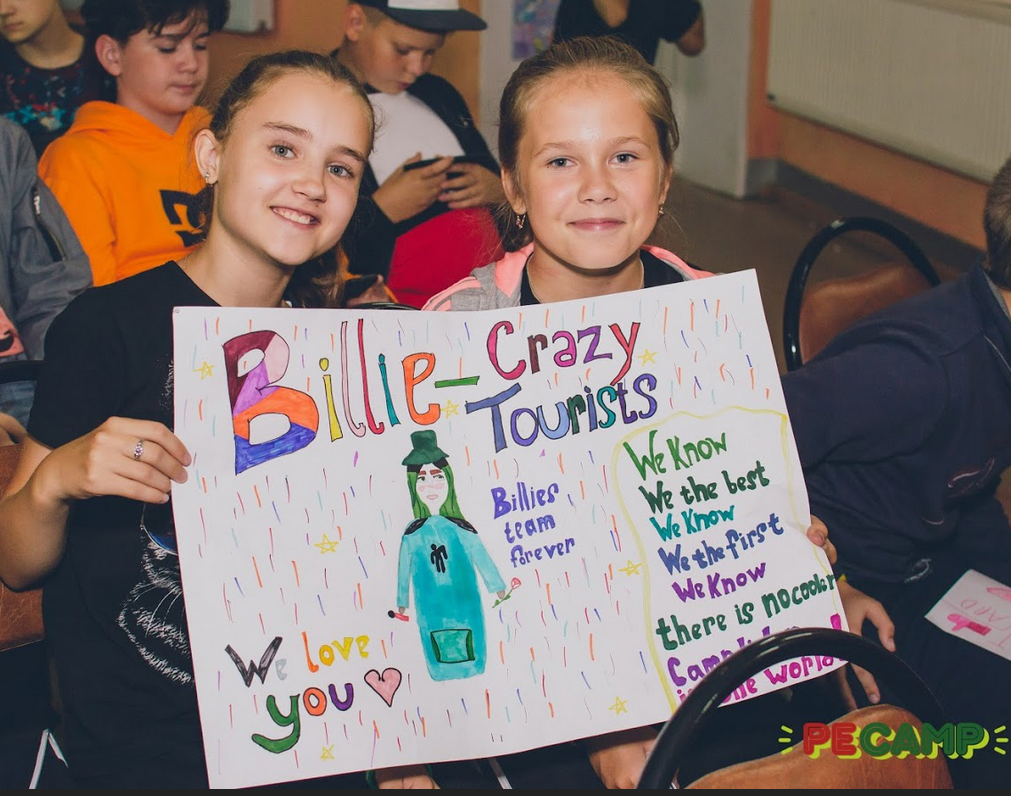 Billie - Crazy
Tourists
Billies
team
forever
We love
you
We Know
We the best
We Know
We the first
We Know
there is no cooler
Camp
one world
PECAMP